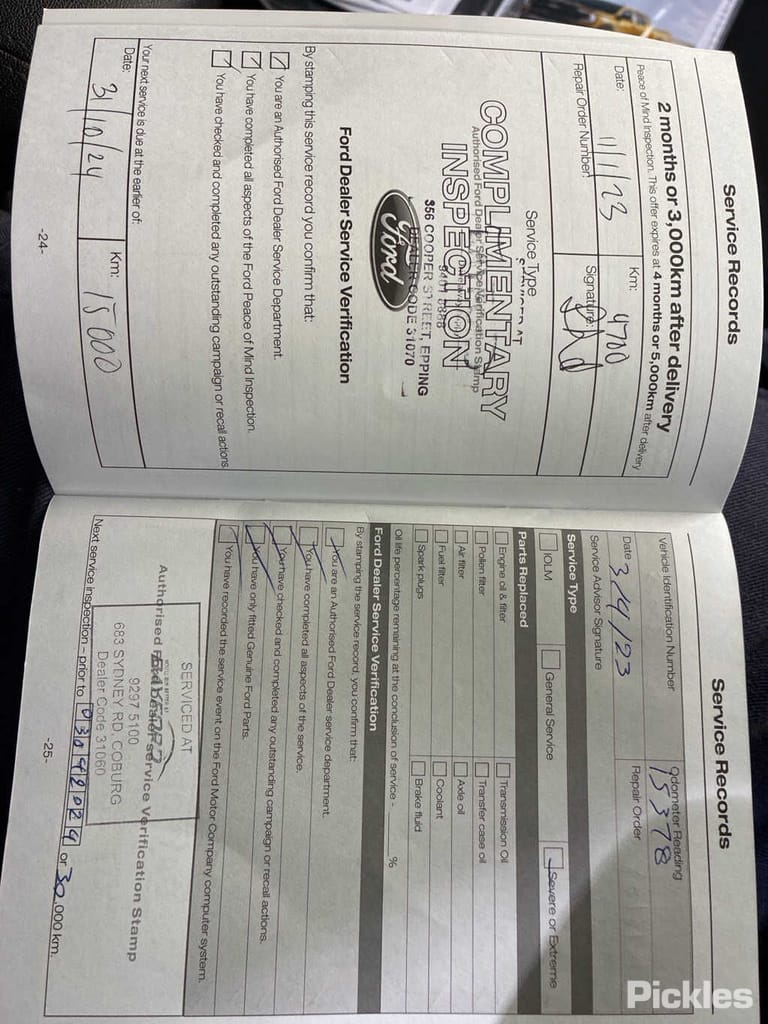 Service Records
2 months or 3,000km after delivery
Peace of Mind Inspection. This offer expires at 4 months or 5,000km after delivery
Date: 11/1/23
Km: 4700
Repair Order Number:
Signature:
Service Type
COMPLIMENTARY
INSPECTION
Authorised Ford Dealer Service Verification Stamp
9401 0888
356 COOPER STREET, EPPING
DEALER CODE 31070
Ford
Ford Dealer Service Verification
By stamping this service record you confirm that:
You are an Authorised Ford Dealer Service Department.
You have completed all aspects of the Ford Peace of Mind Inspection.
You have checked and completed any outstanding campaign or recall actions.
Your next service is due at the earlier of:
Date: 31/10/24
Km: 15000
-24-
Service Records
Vehicle Identification Number
Odometer Reading
15378
Date 3/4/23
Repair Order
Service Advisor Signature
Service Type
IOLM
General Service
Severe or Extreme
Parts Replaced
Engine oil & filter
Transmission Oil
Pollen filter
Transfer case oil
Air filter
Axle oil
Fuel filter
Coolant
Spark plugs
Brake fluid
Oil life percentage remaining at the conclusion of service - %
Ford Dealer Service Verification
By stamping the service record, you confirm that:
You are an Authorised Ford Dealer service department.
You have completed all aspects of the service.
You have checked and completed any outstanding campaign or recall actions.
You have only fitted Genuine Ford Parts.
You have recorded the service event on the Ford Motor Company computer system.
SERVICED AT
Authorised Ford Dealer service Verification Stamp
9297 5100
683 SYDNEY RD, COBURG
Dealer Code 31060
Next service inspection – prior to 03042024 or 30,000 km.
-25-
Pickles